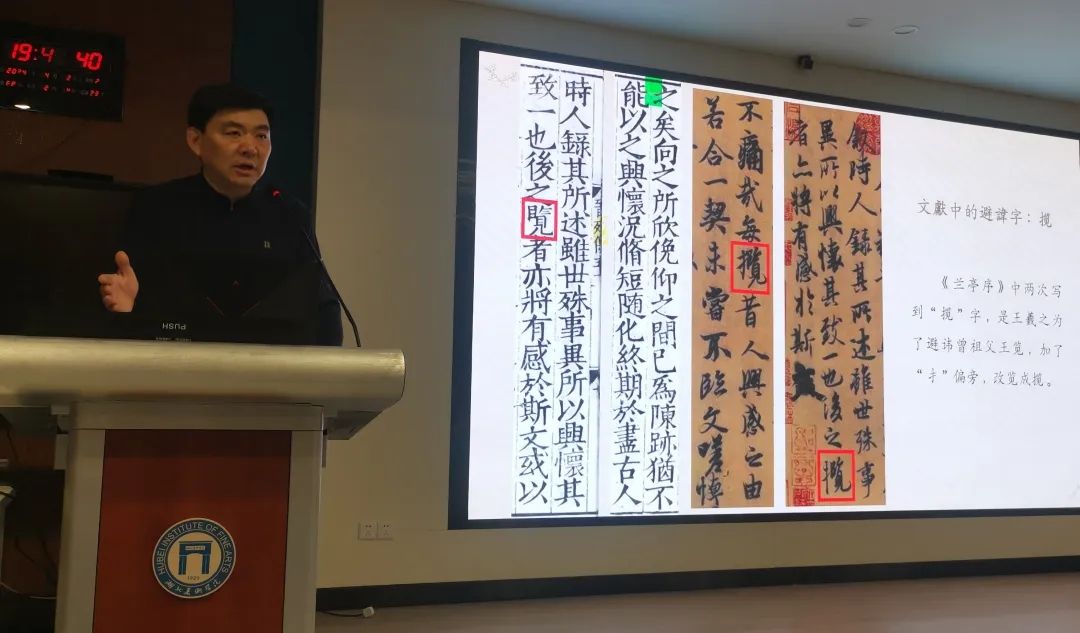 19:4 40
文獻中的避諱字：揽
《兰亭序》中两次写
到“揽”字，是王羲之为
了避讳曾祖父王览，加了
“扌”偏旁，改览成揽。
叙時人錄其所述雖世殊事
異所以興懷其致一也後之攬
者亦將有感於斯文
不痛哉每攬昔人興感之由
若合一契未嘗不臨文嗟悼
之矣向之所欣俛仰之間已為陳跡猶不
能以之興懷况脩短随化終期於盡古人
時人錄其所述雖世殊事異所以興懷其
致一也後之覽者亦將有感於斯文或以
PUSH
HUBEI INSTITUTE OF FINE ARTS
湖北美术学院